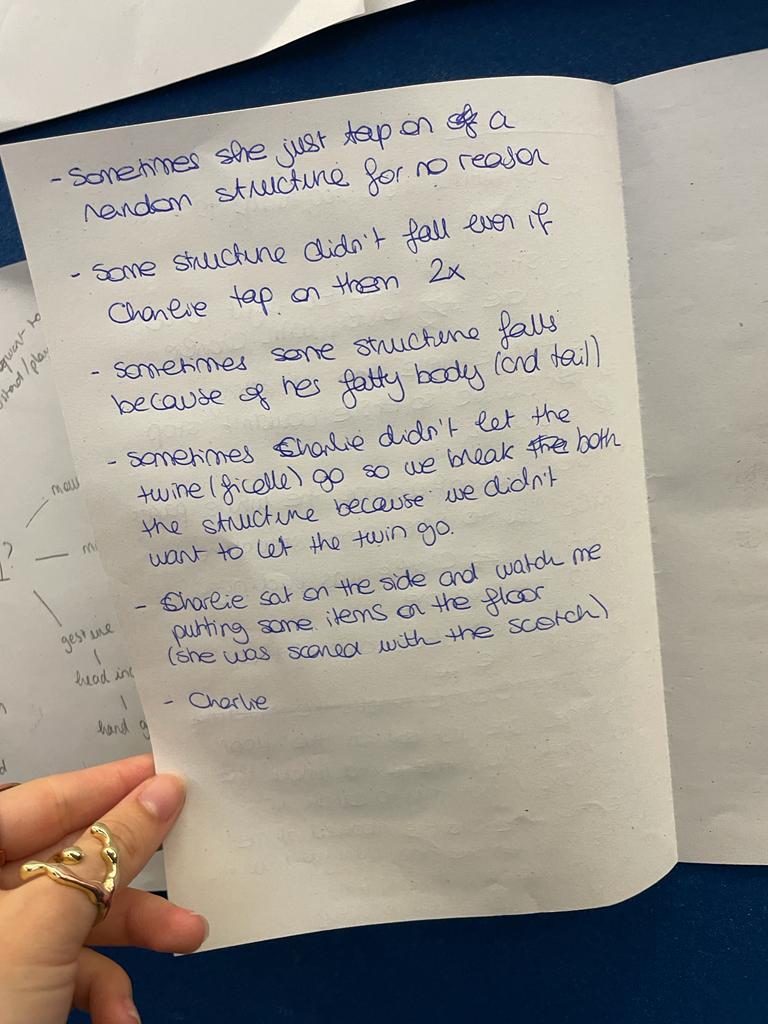 - Sometimes she just tap on of a
random structure for no reason
- Some structure didn't fall even if
Charlie tap on them 2x
- sometimes some structure falls
because of hes fatty body (and tail)
- sometimes Charlie didn't let the
twine (ficelle) go so we break the both
the structure because we didn't
want to let the twin go.
- Charlie sat on the side and watch me
putting some items on the floor
(she was scared with the scotch)
- Charlie
gesture
head
hand